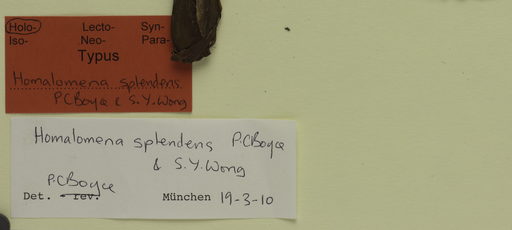 Holo- Lecto- Syn-
Iso- Neo- Para-
Typus
Homalomena splendens
P.C.Boyce & S.Y.Wong
Homalomena splendens P.C.Boyce
& S.Y.Wong
P.C.Boyce
Det. - rev. München 19-3-10